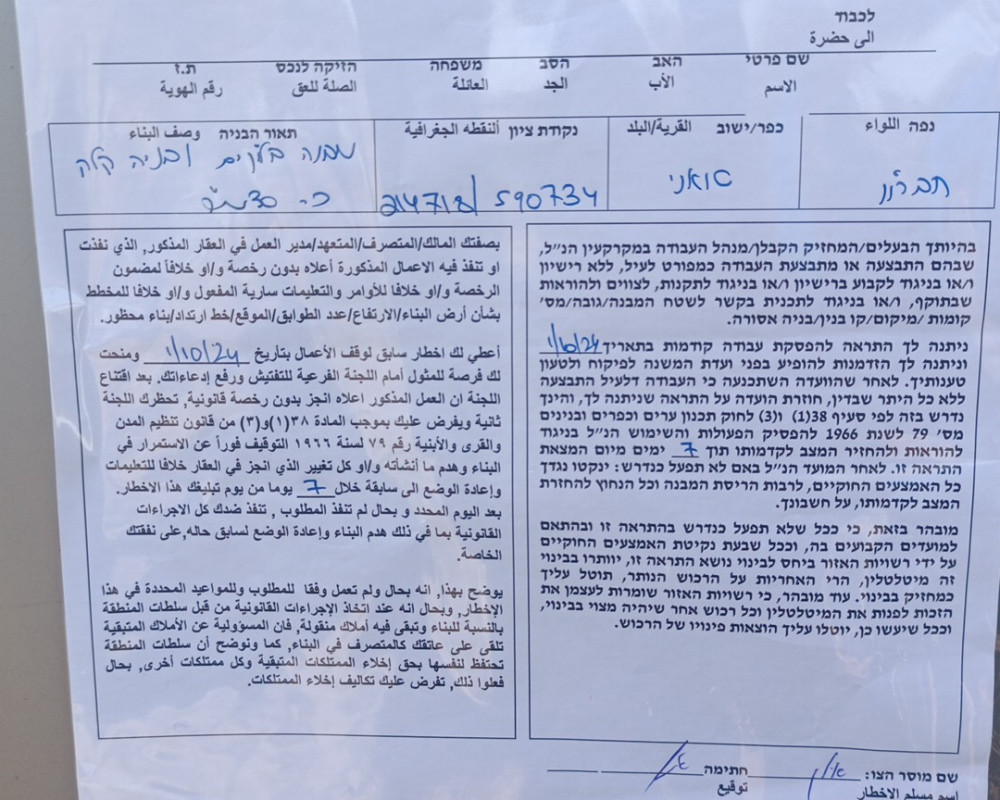 לכבוד
الى حضرة
שם פרטי האב הסב משפחה הזיקה לנכס ת.ז
الاسم الأب الجد العائلة الصلة للعق رقم الهوية
נפה اللواء כפר/ישוב القرية/البلد נקודת ציון النقطه الجغرافية תאור הבניה وصف البناء
חברון 590734 / 214718 מבנה בלוקים ובניה קלה
בהיותך הבעלים/המחזיק הקבלן/מנהל העבודה במקרקעין הנ"ל,
שבהם התבצעה או מתבצעת העבודה כמפורט לעיל, ללא רישיון
ו/או בניגוד לקבוע ברישיון ו/או בניגוד לתקנות, לצווים ולהוראות
שבתוקף, ו/או בניגוד לתכנית בקשר לשטח המבנה/גובה/מס'
קומות /מיקום/קו בנין/בניה אסורה.
ניתנה לך התראה להפסקת עבודה קודמות בתאריך 1/10/24
וניתנה לך הזדמנות להופיע בפני ועדת המשנה לפיקוח ולטעון
טענותיך. לאחר שהוועדה השתכנעה כי העבודה דלעיל התבצעה
ללא כל היתר שבדין, חוזרת הועדה על התראה שניתנה לך, והינך
נדרש בזה לפי סעיף 38(1) ו(3) לחוק תכנון ערים וכפרים ובנינים
מס' 79 לשנת 1966 להפסיק הפעולות והשימוש הנ"ל בניגוד
להוראות ולהחזיר המצב לקדמותו תוך 7 ימים מיום המצאת
התראה זו. לאחר המועד הנ"ל באם לא תפעל כנדרש: ינקטו נגדך
כל האמצעים החוקיים, לרבות הריסת המבנה וכל הנחוץ להחזרת
המצב לקדמותו, על חשבונך.
מובהר בזאת, כי ככל שלא תפעל כנדרש בהתראה זו ובהתאם
למועדים הקבועים בה, וככל שבעת נקיטת האמצעים החוקיים
על ידי רשויות האזור ביחס לבינוי נושא התראה זו, יוותרו בבינוי
זה מיטלטלין, הרי האחריות על הרכוש הנותר, תוטל עליך
כמחזיק בבינוי. עוד מובהר, כי רשויות האזור שומרות לעצמן את
הזכות לפנות את המיטלטלין וכל רכוש אחר שיהיה מצוי בבינוי,
וככל שיעשו כן, יוטלו עליך הוצאות פינויו של הרכוש.
بصفتك المالك/المتصرف/المتعهد/مدير العمل في العقار المذكور, الذي نفذت
او تنفذ فيه الاعمال المذكورة أعلاه بدون رخصة و/او خلافاً لمضمون
الرخصة و/او خلافا للأوامر والتعليمات سارية المفعول و/او خلافا للمخطط
بشأن أرض البناء/الارتفاع/عدد الطوابق/الموقع/خط ارتداد/بناء محظور.
أعطي لك اخطار سابق لوقف الأعمال بتأريخ 1/10/24 ومنحت
لك فرصة للمثول أمام اللجنة الفرعية للتفتيش ورفع إدعاءاتك. بعد اقتناع
اللجنة ان العمل المذكور اعلاه انجز بدون رخصة قانونية, تحظرك اللجنة
ثانية ويفرض عليك بموجب المادة ٣٨(١)و(٣) من قانون تنظيم المدن
والقرى والأبنية رقم ٧٩ لسنة ١٩٦٦ التوقيف فوراً عن الاستمرار في
البناء وهدم ما أنشأته و/او كل تغيير الذي انجز في العقار خلافا للتعليمات
وإعادة الوضع الى سابقة خلال 7 يوما من يوم تبليغك هذا الاخطار.
بعد اليوم المحدد و بحال لم تنفذ المطلوب , تنفذ ضدك كل الاجراءات
القانونية بما في ذلك هدم البناء وإعادة الوضع لسابق حاله,على نفقتك
الخاصة.
يوضح بهذا, انه بحال ولم تعمل وفقا للمطلوب وللمواعيد المحددة في هذا
الإخطار, وبحال انه عند اتخاذ الإجراءات القانونية من قبل سلطات المنطقة
بالنسبة للبناء وتبقى فيه أملاك منقولة, فان المسؤولية عن الأملاك المتبقية
تلقى على عاتقك كالمتصرف في البناء, كما ونوضح أن سلطات المنطقة
تحتفظ لنفسها بحق إخلاء الممتلكات المتبقية وكل ممتلكات أخرى, بحال
فعلوا ذلك, تفرض عليك تكاليف إخلاء الممتلكات.
שם מוסר הצו: חתימה
اسم مسلم الاخطار توقيع